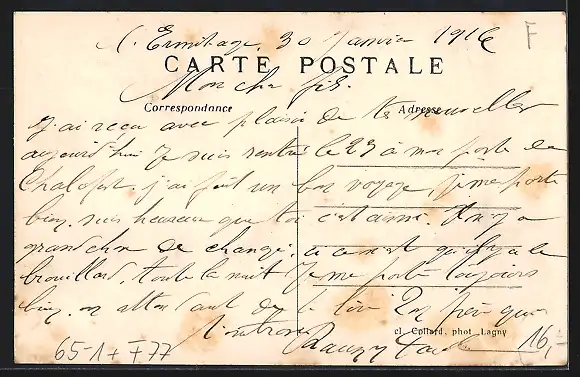 L'Ermitage, 30 Janvier 1916
F
CARTE POSTALE
Mon cher fils
Correspondance
Adresse
J'ai reçu avec plaisir de tes nouvelles
aujourd'hui je suis rentré le 29 à mon poste de
j'ai fait un bon voyage, je me porte
bien. suis heureux que toi c'est ainsi. Il n'y a
grand chose de changé, le
brouillard, toute la nuit Je me porte toujours
bien. en attendant de te lire Ton père qui
cl. Collard, phot. Lagny
16,-
65-1 + F77